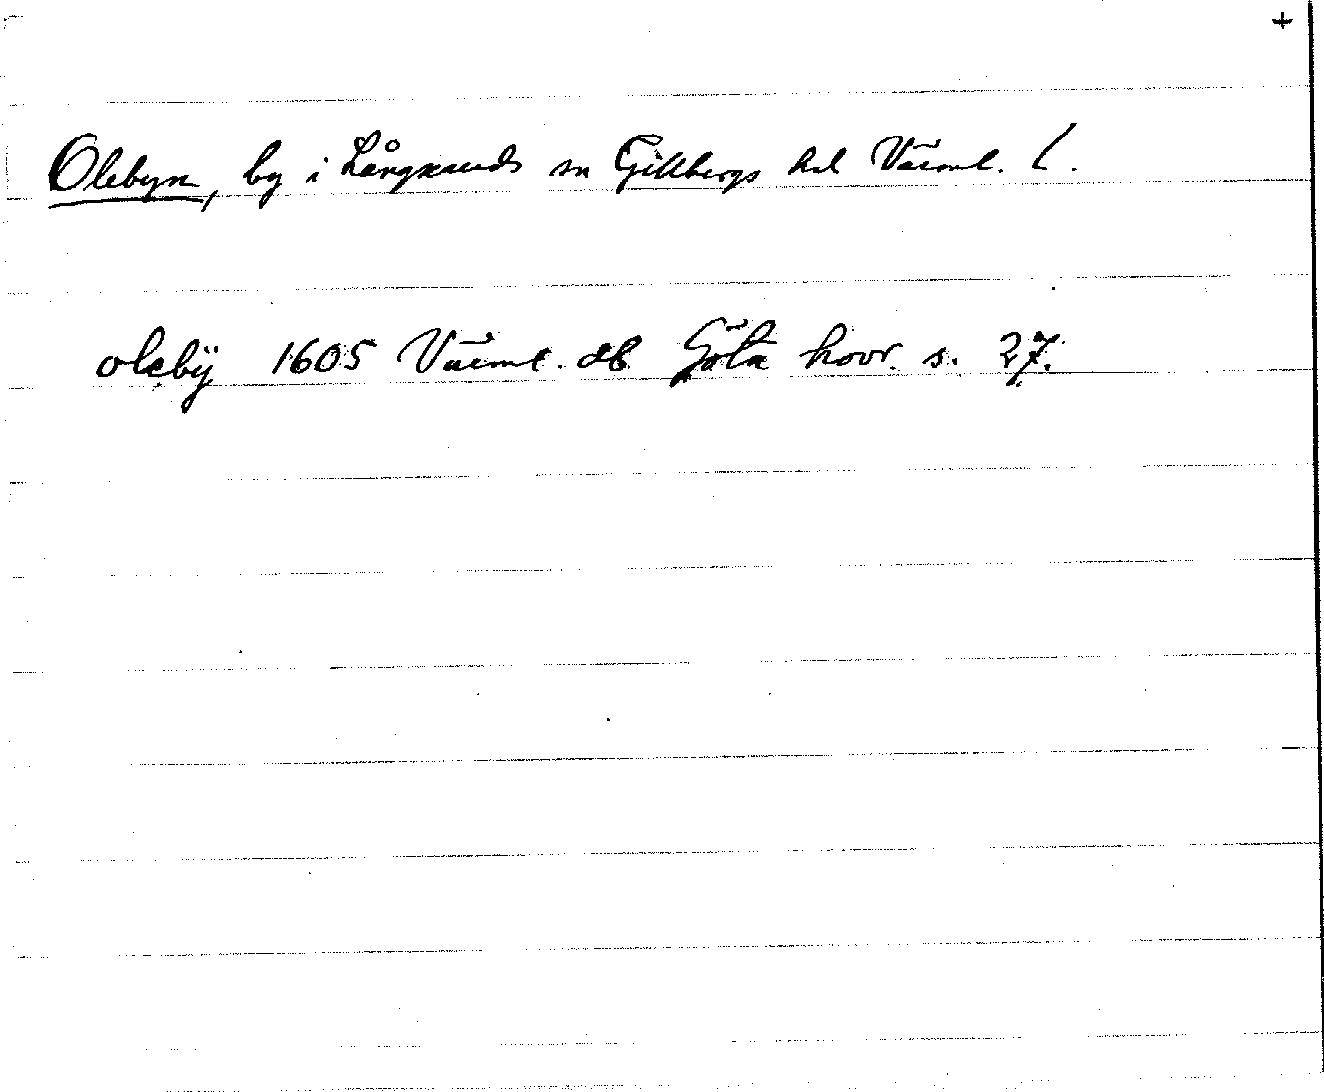 +
Olebyn, by i Långseruds sn Gillbergs hd Värml. l.
olebÿ 1605 Värml. db Göta hovr. s. 27.